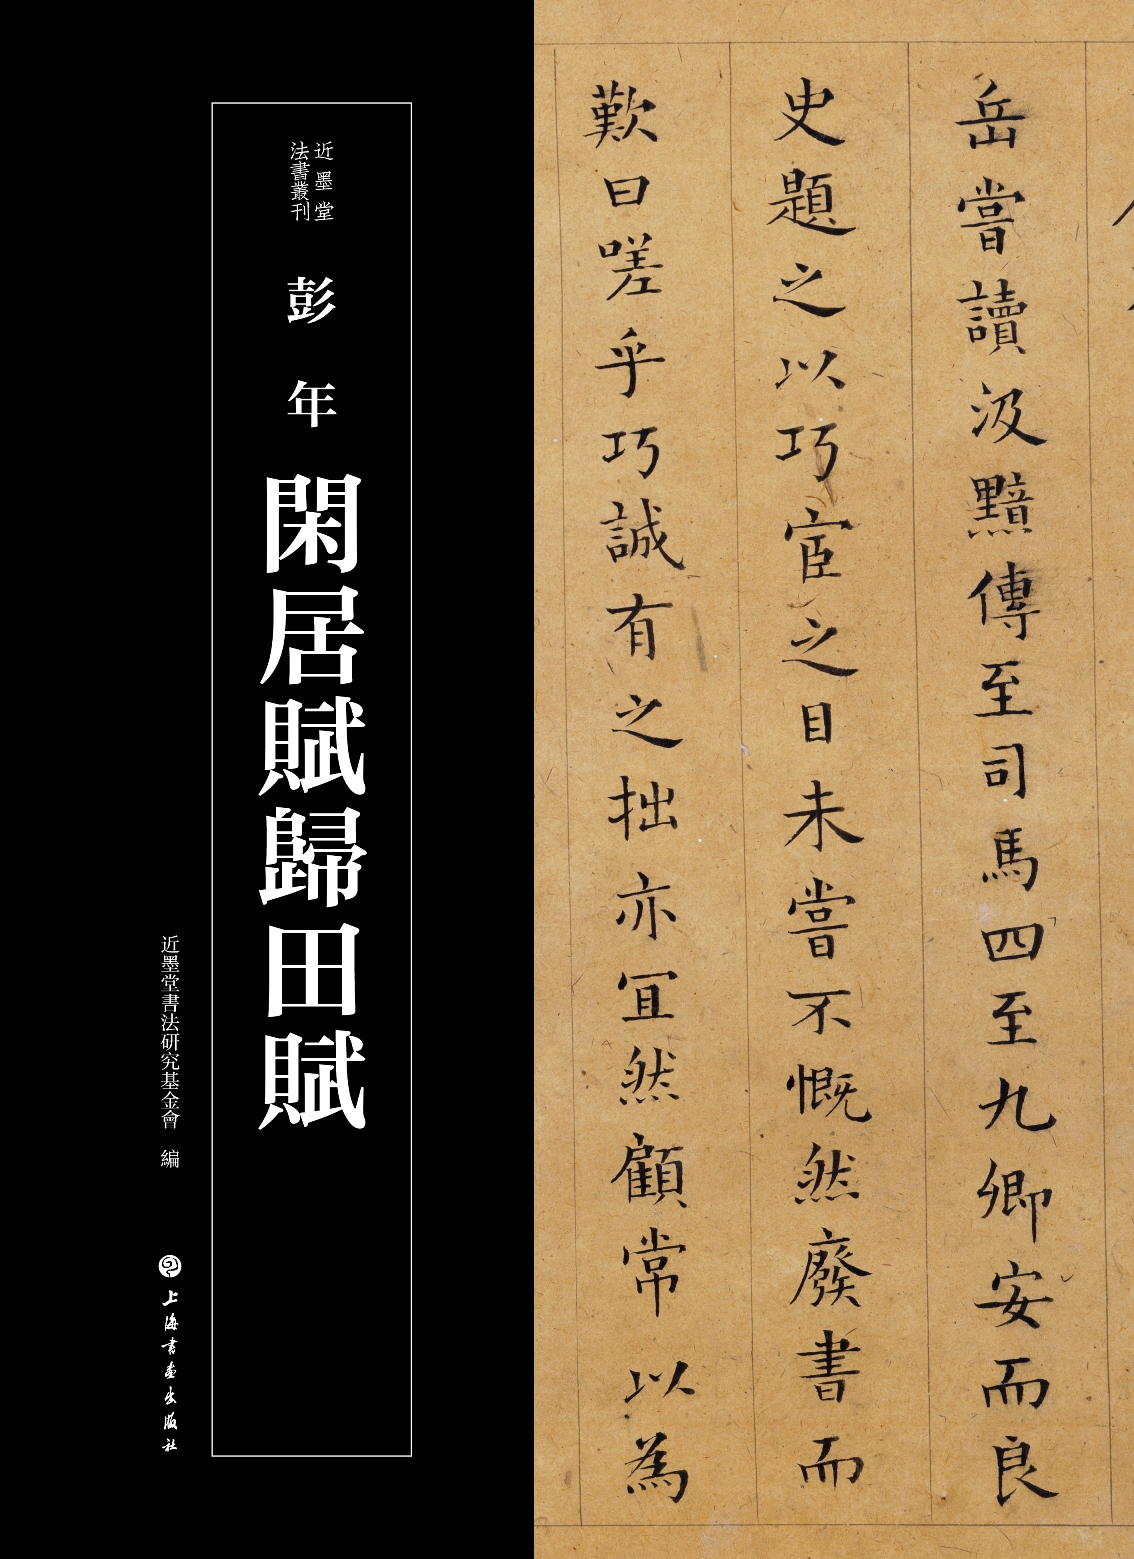 近墨堂
法書叢刊
彭年
閑居賦歸田賦
近墨堂書法研究基金會 編
上海书画出版社
岳嘗讀汲黯傳至司馬四至九卿安而良
史題之以巧宦之目未嘗不慨然廢書而
歎曰嗟乎巧誠有之拙亦宜然顧常以為